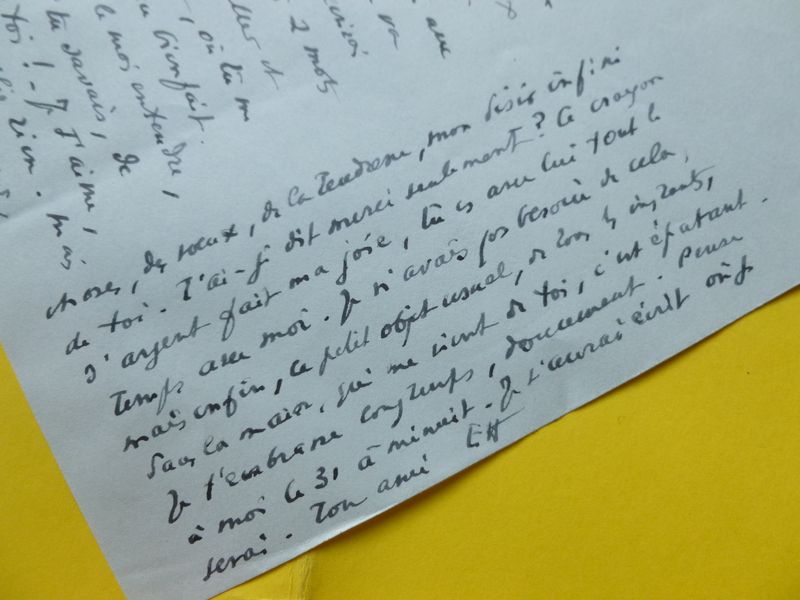 choses, des vœux, de la tendresse, mon désir infini
de toi. T'ai-je dit merci seulement ? Ce crayon
d'argent fait ma joie, tu es avec lui tout le
temps avec moi. Je n'avais pas besoin de cela,
mais enfin, ce petit objet usuel, de tous les instants,
dans la main, qui me vient de toi, c'est épatant.
Je t'embrasse longtemps, doucement. Pense
à moi le 31 à minuit. Je t'aurai écrit où je
serai. Ton ami EH
avec
va
2 mots
et
, où tu m
bienfait.
le mois entendre,
tu savais, de
toi ! - Je t'aime,
rien. mais